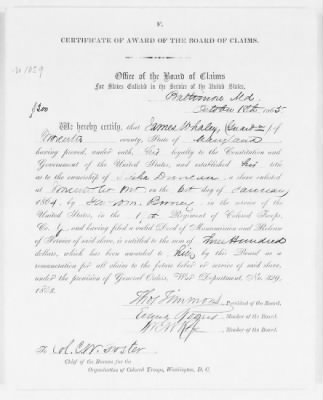 F.
CERTIFICATE OF AWARD OF THE BOARD OF CLAIMS.
Office of the Board of Claims
For Slaves Enlisted in the Service of the United States,
Baltimore Md.
October 1865
$300
We hereby certify, that James Whaley, of
county, State of Maryland
having proved, under oath, his loyalty to the Constitution and
Government of the United States, and established his title
as to the ownership of Duncan, a slave enlisted
at on the day of January
1864, by Birney, in the service of the
United States, in the Regiment of Colored Troops,
Co. and having filed a valid Deed of Manumission and Release
of Service of said slave, is entitled to the sum of Three Hundred
dollars, which has been awarded to him by this Board as a
remuneration for all claims to the future labor or service of said slave,
under the provision of General Orders, War Department, No. 329,
1863.
Thos Timmons, President of the Board.
, Member of the Board.
, Member of the Board.
To Col. C.W. Foster
Chief of the Bureau for the
Organization of Colored Troops, Washington, D. C.